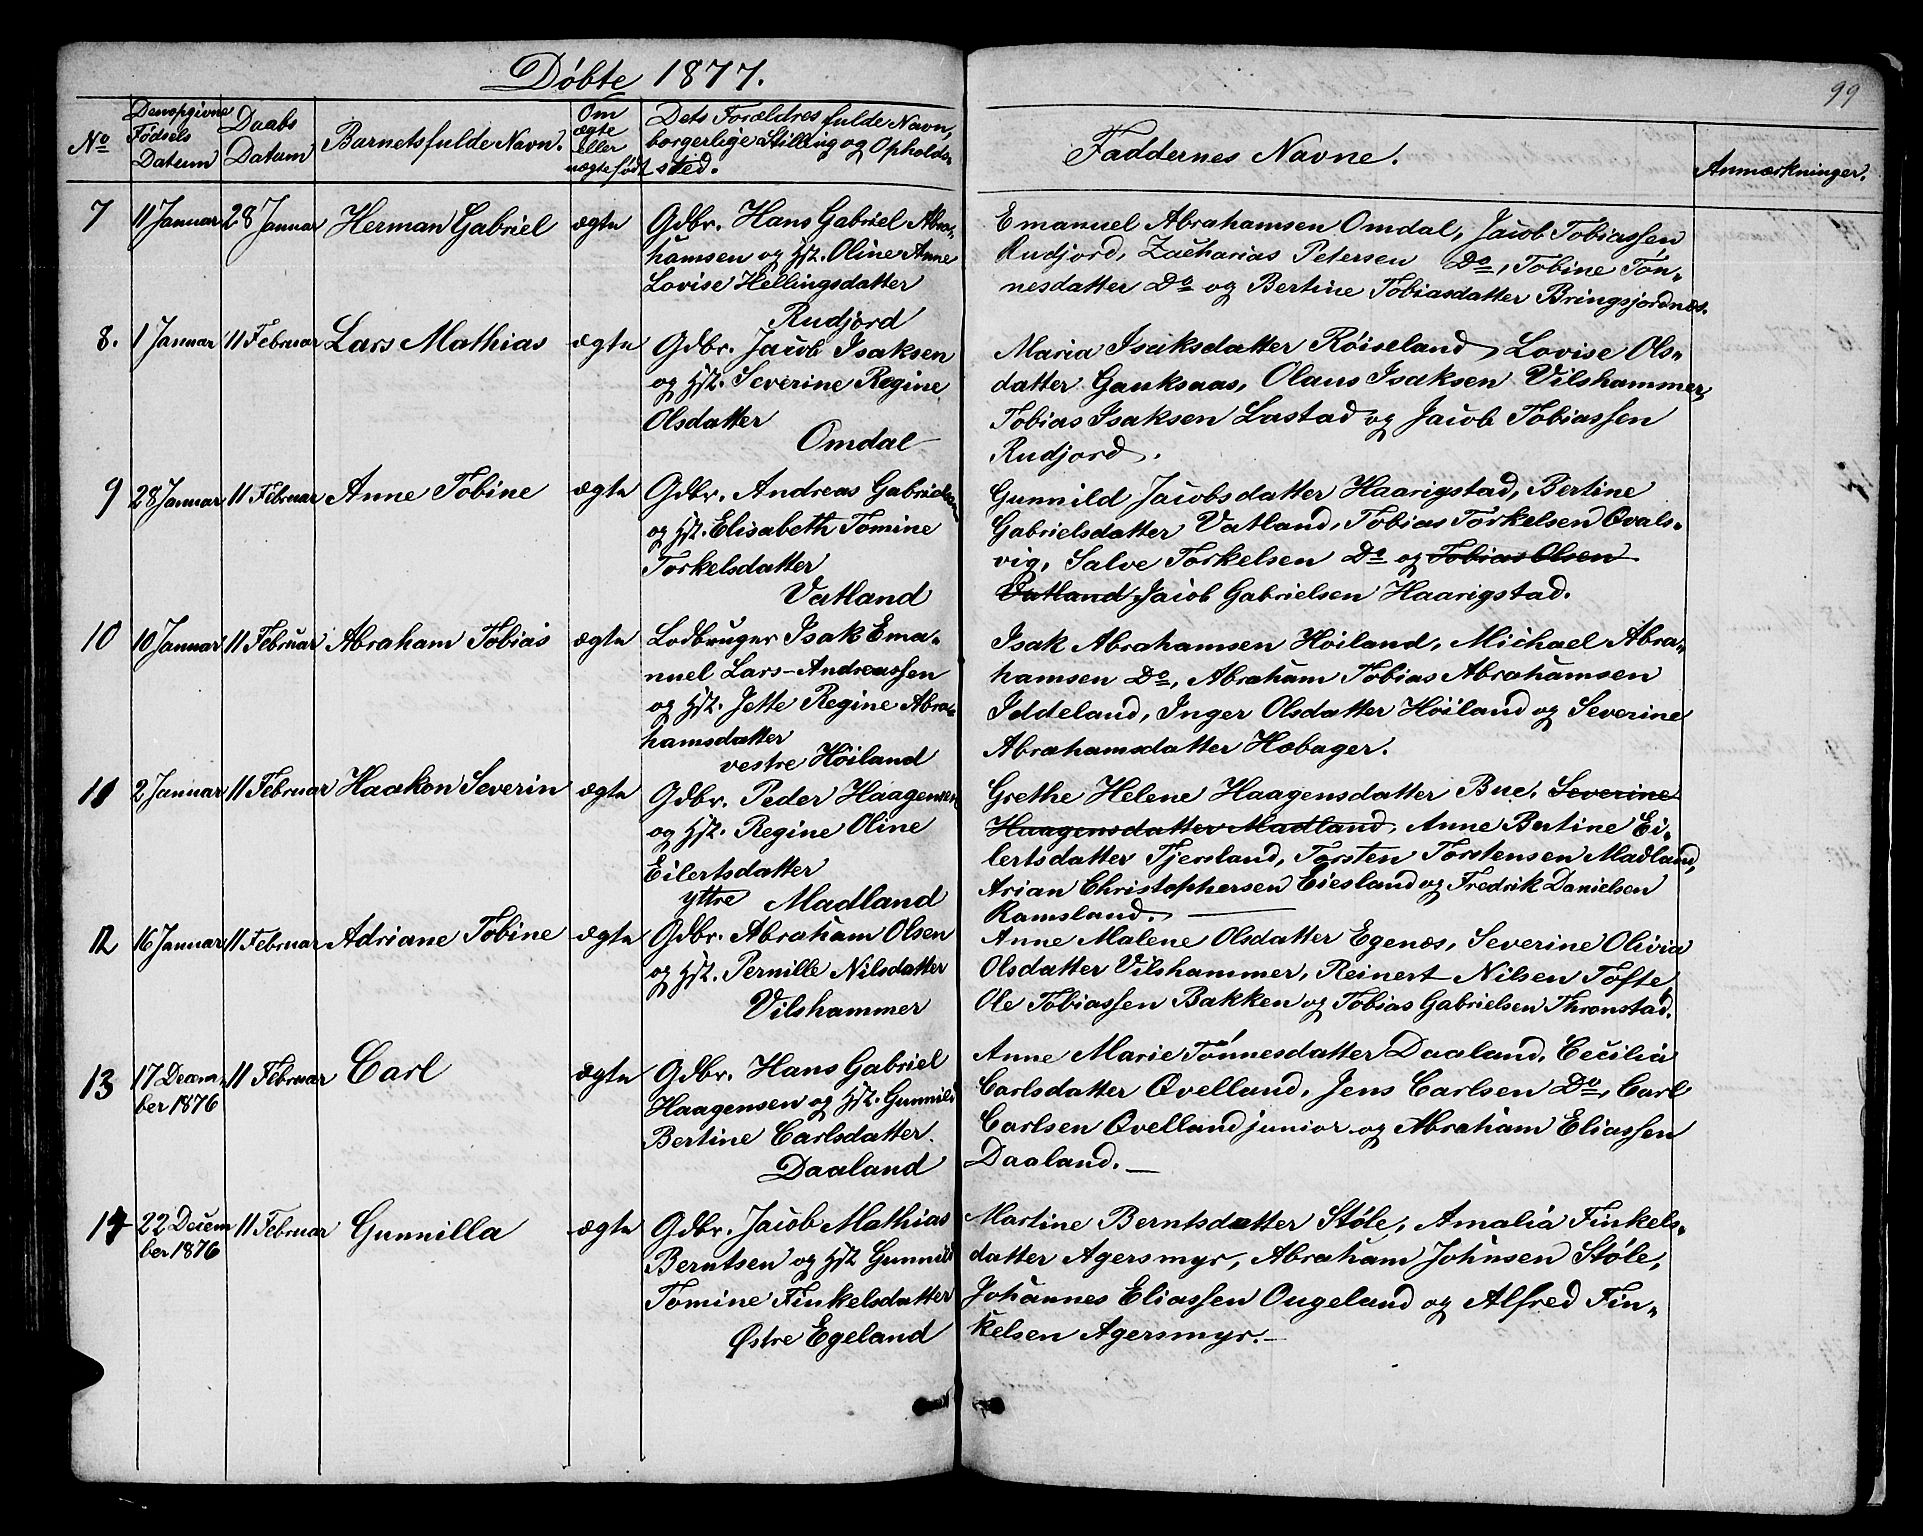 Döbte 1877.
99
No
Den opgivne Fødsels Datum
Daabs Datum
Barnets fulde Navn.
Om ægte eller uægte født
Dets Forældres fulde Navn, borgerlige Stilling og Opholdssted.
Faddernes Navne.
Anmærkninger.
7 11 Januar 28 Januar Herman Gabriel ægte
Gdbr. Hans Gabriel Abra-
hamsen og Hst. Oline Anne
Lovise Hellingsdatter
Rudjord
Emanuel Abrahamsen Omdal, Jacob Tobiassen
Rudjord, Zacharias Petersen Do, Tobine Tøn-
nesdatter Do og Bertine Tobiasdatter Bringsjordnes.
8. 1 Januar 11 Februar Lars Mathias ægte
Gdbr. Jacob Isaksen
og Hst. Severine Regine
Olsdatter
Omdal
Maria Isaksdatter Røiseland, Lovise Ols-
datter Gauksaas, Olaus Isaksen Vilshammer,
Tobias Isaksen Lastad og Jacob Tobiassen
Rudjord.
9 28 Januar 11 Februar Anne Tobine ægte
Gdbr. Andreas Gabrielsen
og Hst. Elisabeth Tomine
Torkelsdatter
Vatland
Gunnild Jacobsdatter Haarigstad, Bertine
Gabrielsdatter Vatland, Tobias Torkelsen Qvals-
vig, Salve Torkelsen Do og Tobias Olsen
Vatland Jacob Gabrielsen Haarigstad.
10 10 Januar 11 Februar Abraham Tobias ægte
Lodbruger Isak Ema-
nuel Lars-Andreassen
og Hst. Jette Regine Abra-
hamsdatter
vestre Höiland
Isak Abrahamsen Höiland, Michael Abra-
hamsen Do, Abraham Tobias Abrahamsen
Iddeland, Inger Olsdatter Höiland og Severine
Abrahamsdatter Hobager.
11 2 Januar 11 Februar Haakon Severin ægte
Gdbr. Peder Haagensen
og Hst. Regine Oline
Eilertsdatter
yttre Madland
Grethe Helene Haagensdatter Bue, Severine
Haagensdatter Madland, Anne Bertine Ei-
lertsdatter Tjersland, Torsten Torstensen Madland,
Arian Christophersen Eiesland og Fredrik Danielsen
Ramsland.
12 16 Januar 11 Februar Adriane Tobine ægte
Gdbr. Abraham Olsen
og Hst. Pernille Nilsdatter
Vilshammer
Anne Malene Olsdatter Egenæs, Severine Olivia
Olsdatter Vilshammer, Reinert Nilsen Tofte,
Ole Tobiassen Bakken og Tobias Gabrielsen Thronstad.
13 17 Decem- 11 Februar Carl ægte
ber 1876
Gdbr. Hans Gabriel
Haagensen og Hst. Gunnild
Bertine Carlsdatter.
Daaland
Anne Marie Tönnesdatter Daaland, Cecilia
Carlsdatter Qvelland, Jens Carlsen Do, Carl
Carlsen Qvelland junior og Abraham Eliassen
Daaland.
14 22 Decem 11 Februar Gunnilla ægte
ber 1876
Gdbr. Jacob Mathias
Berntsen og Hst Gunnild
Tomine Finkelsdatter
Østre Egeland
Martine Berntsdatter Støle, Amalia Finkels-
datter Agersmyr, Abraham Johnsen Støle,
Johannes Eliassen Ougeland og Alfred Fin-
kelsen Agersmyr.